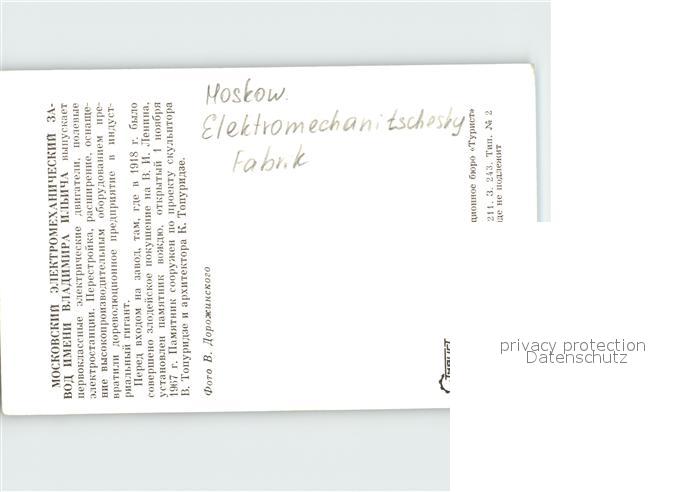 МОСКОВСКИЙ ЭЛЕКТРОМЕХАНИЧЕСКИЙ ЗА-
ВОД ИМЕНИ ВЛАДИМИРА ИЛЬИЧА выпускает
первоклассные электрические двигатели, полевые
электростанции. Перестройка, расширение, оснаще-
ние высокопроизводительным оборудованием пре-
вратили дореволюционное предприятие в индуст-
риальный гигант.
Перед входом на завод, там, где в 1918 г. было
совершено злодейское покушение на В. И. Ленина,
установлен памятник вождю, открытый 1 ноября
1967 г. Памятник сооружен по проекту скульптора
В. Топуридзе и архитектора К. Топуридзе.
Фото В. Дорожинского
Moskow.
Elektromechanitschesky
Fabrik
ционное бюро «Турист»
211. З. 243. Тип. № 2
где не подлежит
ТУРИСТ
privacy protection
Datenschutz